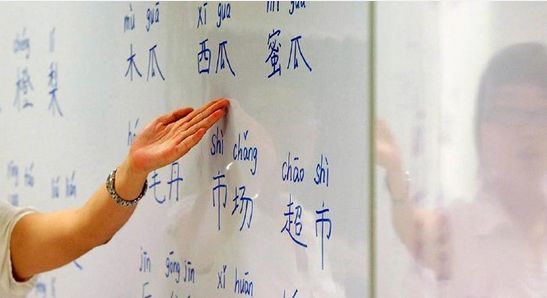 mù guā xī guā mì guā
木瓜 西瓜 蜜瓜
lí
橙 梨
shì chǎng chāo shì
毛丹 市场 超市
jīn gōng jīn xǐ huān